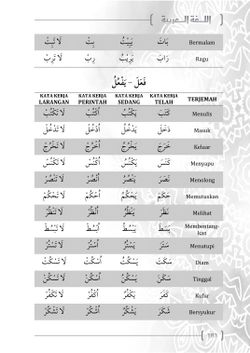 اللغة العربية
Bermalam بَاتَ يَبِيْتُ بِتْ لَا تَبِتْ
Ragu رَابَ يَرِيْبُ رِبْ لَا تَرِبْ
فَعَلَ – يَفْعُلُ
TERJEMAH KATA KERJA TELAH KATA KERJA SEDANG KATA KERJA PERINTAH KATA KERJA LARANGAN
Menulis كَتَبَ يَكْتُبُ اُكْتُبْ لَا تَكْتُبْ
Masuk دَخَلَ يَدْخُلُ اُدْخُلْ لَا تَدْخُلْ
Keluar خَرَجَ يَخْرُجُ اُخْرُجْ لَا تَخْرُجْ
Menyapu كَنَسَ يَكْنُسُ اُكْنُسْ لَا تَكْنُسْ
Menolong نَصَرَ يَنْصُرُ اُنْصُرْ لَا تَنْصُرْ
Memutuskan حَكَمَ يَحْكُمُ اُحْكُمْ لَا تَحْكُمْ
Melihat نَظَرَ يَنْظُرُ اُنْظُرْ لَا تَنْظُرْ
Membentang-
kan بَسَطَ يَبْسُطُ اُبْسُطْ لَا تَبْسُطْ
Menutupi سَتَرَ يَسْتُرُ اُسْتُرْ لَا تَسْتُرْ
Diam سَكَتَ يَسْكُتُ اُسْكُتْ لَا تَسْكُتْ
Tinggal سَكَنَ يَسْكُنُ اُسْكُنْ لَا تَسْكُنْ
Kufur كَفَرَ يَكْفُرُ اُكْفُرْ لَا تَكْفُرْ
Bersyukur شَكَرَ يَشْكُرُ اُشْكُرْ لَا تَشْكُرْ